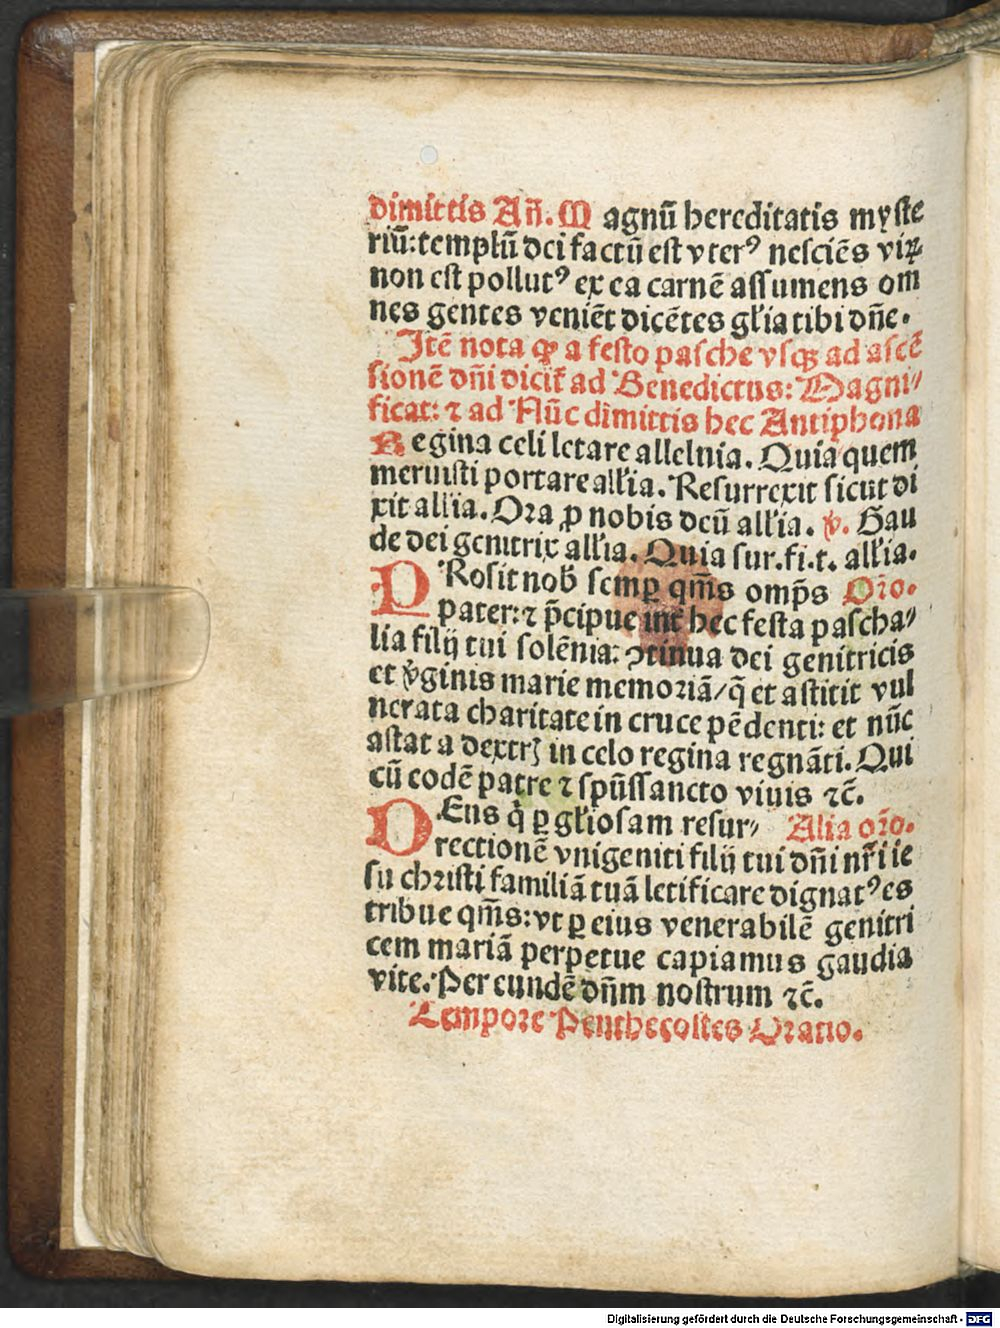 dimittis Añ. M agnū hereditatis myste
riū: templū dei factū est vterꝰ nesciēs viꝝ
non est pollutꝰ ex ea carnē assumens om
nes gentes veniēt dicētes gl'ia tibi dn̄e.
Itē nota ꝙ a festo pasche vsqꝫ ad ascē
sionē dn̄i dicit̄ ad Benedictus: Magni⸗
ficat: ⁊ ad Nūc dimittis hec Antiphona
Regina celi letare allelnia. Quia quem
meruisti portare all'ia. Resurrexit sicut di
xit all'ia. Ora ꝓ nobis deū all'ia. ℣. Gau
de dei genitrix all'ia. Quia sur.fi.t. all'ia.
PRosit nob̄ semꝑ qm̄s omp̄s Oro.
pater: ⁊ p̄cipue int̄ hec festa pascha⸗
lia filij tui solēnia: ꝯtinua dei genitricis
et v̓ginis marie memoriā/ q̄ et astitit vul
nerata charitate in cruce pēdenti: et nūc
astat a dextrꝫ in celo regina regnāti. Qui
cū eodē patre ⁊ spūssancto viuis ⁊c̄.
DEus q̓ ꝑ gl'iosam resur⸗ Alia oro.
rectionē vnigeniti filij tui dn̄i nr̄i ie
su christi familiā tuā letificare dignatꝰ es
tribue qm̄s: vt ꝑ eius venerabilē genitri
cem mariā perpetue capiamus gaudia
vite. Per eundē dn̄m nostrum ⁊c̄.
Tempore Penthecostes Oratio.
Digitalisierung gefördert durch die Deutsche Forschungsgemeinschaft - DFG